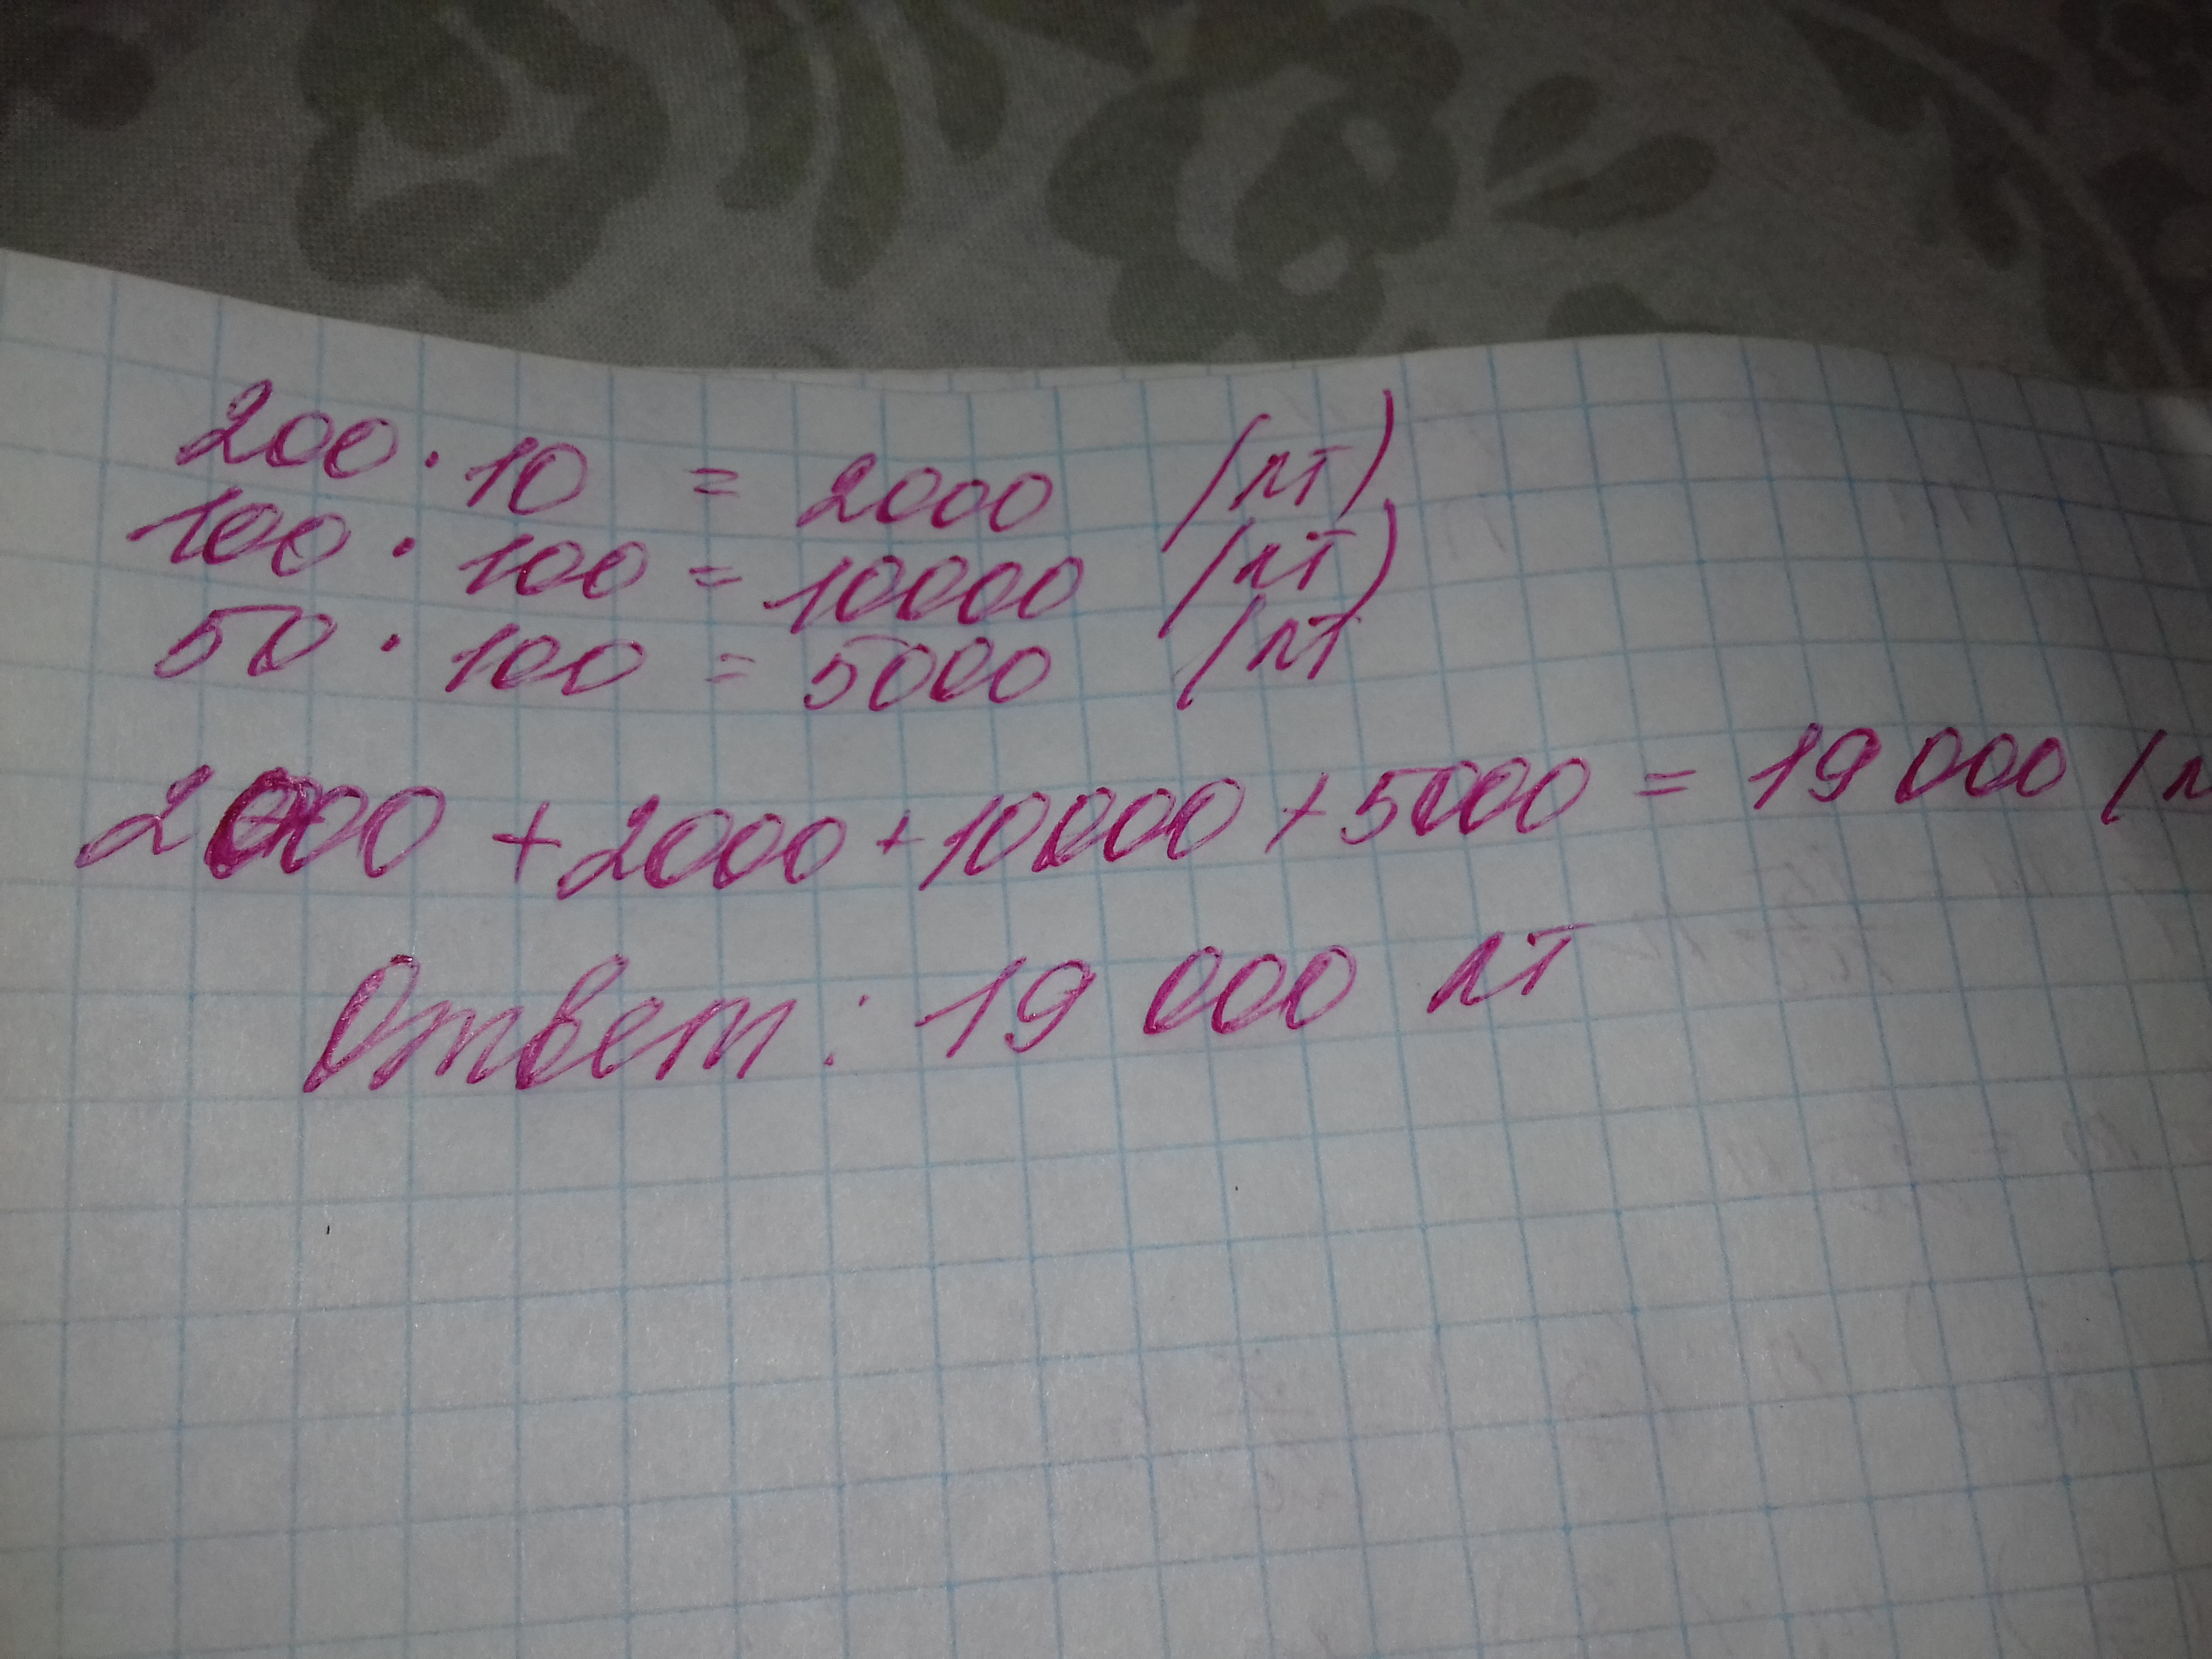 200 · 10 = 2000 (лт)
100 · 100 = 10000 (лт)
50 · 100 = 5000 (лт
2000 + 2000 + 10000 + 5000 = 19 000 (л
Ответ: 19 000 лт